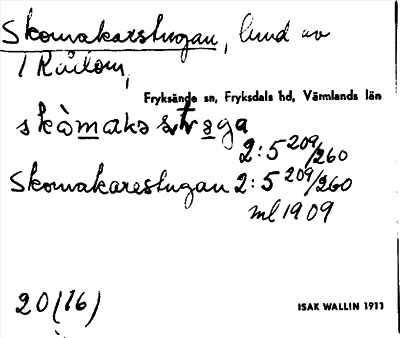 Skomakarstugan, lund av
1 Råtom,
Fryksände sn, Fryksdals hd, Värmlands län
skòmakastr̀sga
2:5 209/260
Skomakarestugan 2:5 209/260
ml 1909
20(16)
ISAK WALLIN 1911